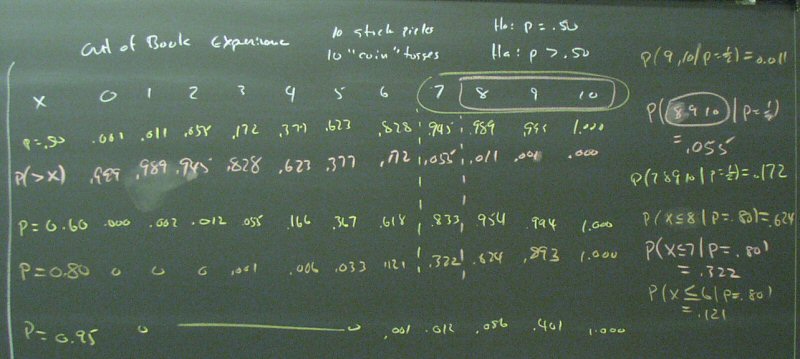 Out of Book Experience
10 stock picks
10 "coin" tosses
Ho: p = .50
Ha: p > .50
X 0 1 2 3 4 5 6 7 8 9 10
P=.50 .001 .011 .055 .172 .377 .623 .828 .945 .989 .999 1.000
P(>X) .999 .989 .945 .828 .623 .377 .172 .055 .011 .001 .000
P=0.60 .000 .002 .012 .055 .166 .367 .618 .833 .954 .994 1.000
P=0.80 0 0 0 .001 .006 .033 .121 .322 .624 .893 1.000
P=0.95 0 0 .001 .012 .086 .401 1.000
P(9,10|p=½)=0.011
P(8 9 10|p=½)
=.055
P(7 8 9 10|p=½)=.172
P(X≤8|p=.80)=.624
P(X≤7|p=.80)
=.322
P(X≤6|p=.80)
=.121